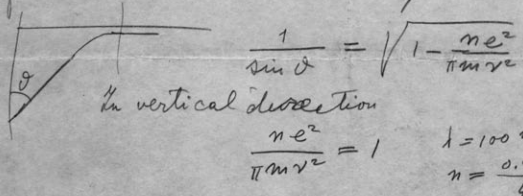 ϑ
1/sin ϑ = √(1 − ne²/πmν²)
In vertical direction
ne²/πmν² = 1 λ = 100
n = 0.